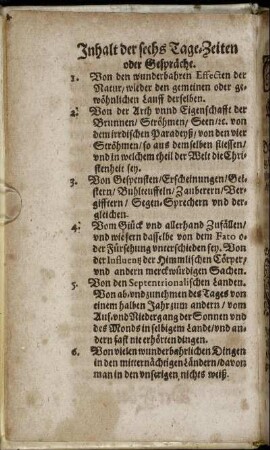 Inhalt der sechs Tage-Zeiten
oder Gespräche.
1. Von den wunderbahren Effecten der
Natur/wieder den gemeinen oder ge-
wöhnlichen Lauff derselben.
2. Von der Arth vnnd Eigenschafft der
Brunnen/Ströhmen/Seen/ꝛc. von
dem irrdischen Paradeyß/von den vier
Ströhmen/so aus demselben fliessen/
vnd in welchem theil der Welt die Chri-
stenheit sey.
3. Von Gespensten/Erscheinungen/Gei-
stern/Buhlteuffeln/Zauberern/Ver-
gifftern/Segen-Sprechern vnd der-
gleichen.
4. Vom Glück vnd allerhand Zufällen/
vnd wiefern dasselbe von dem Fato o-
der Fürsehung vnterschieden sey. Von
der Influentz der Himmlischen Cörper/
vnd andern merckwürdigen Sachen.
5. Von den Septentrionalischen Landen.
Von ab-vnd zunehmen des Tages von
einem halben Jahr zum andern/vom
Auf-vnd Niedergang der Sonnen vnd
des Monds in selbigem Lande/vnd an-
dern fast nie erhörten dingen.
6. Von vielen wunderbahrlichen Dingen
in den mitternächtigen Ländern/davon
man in den vnserigen nichts weiß.